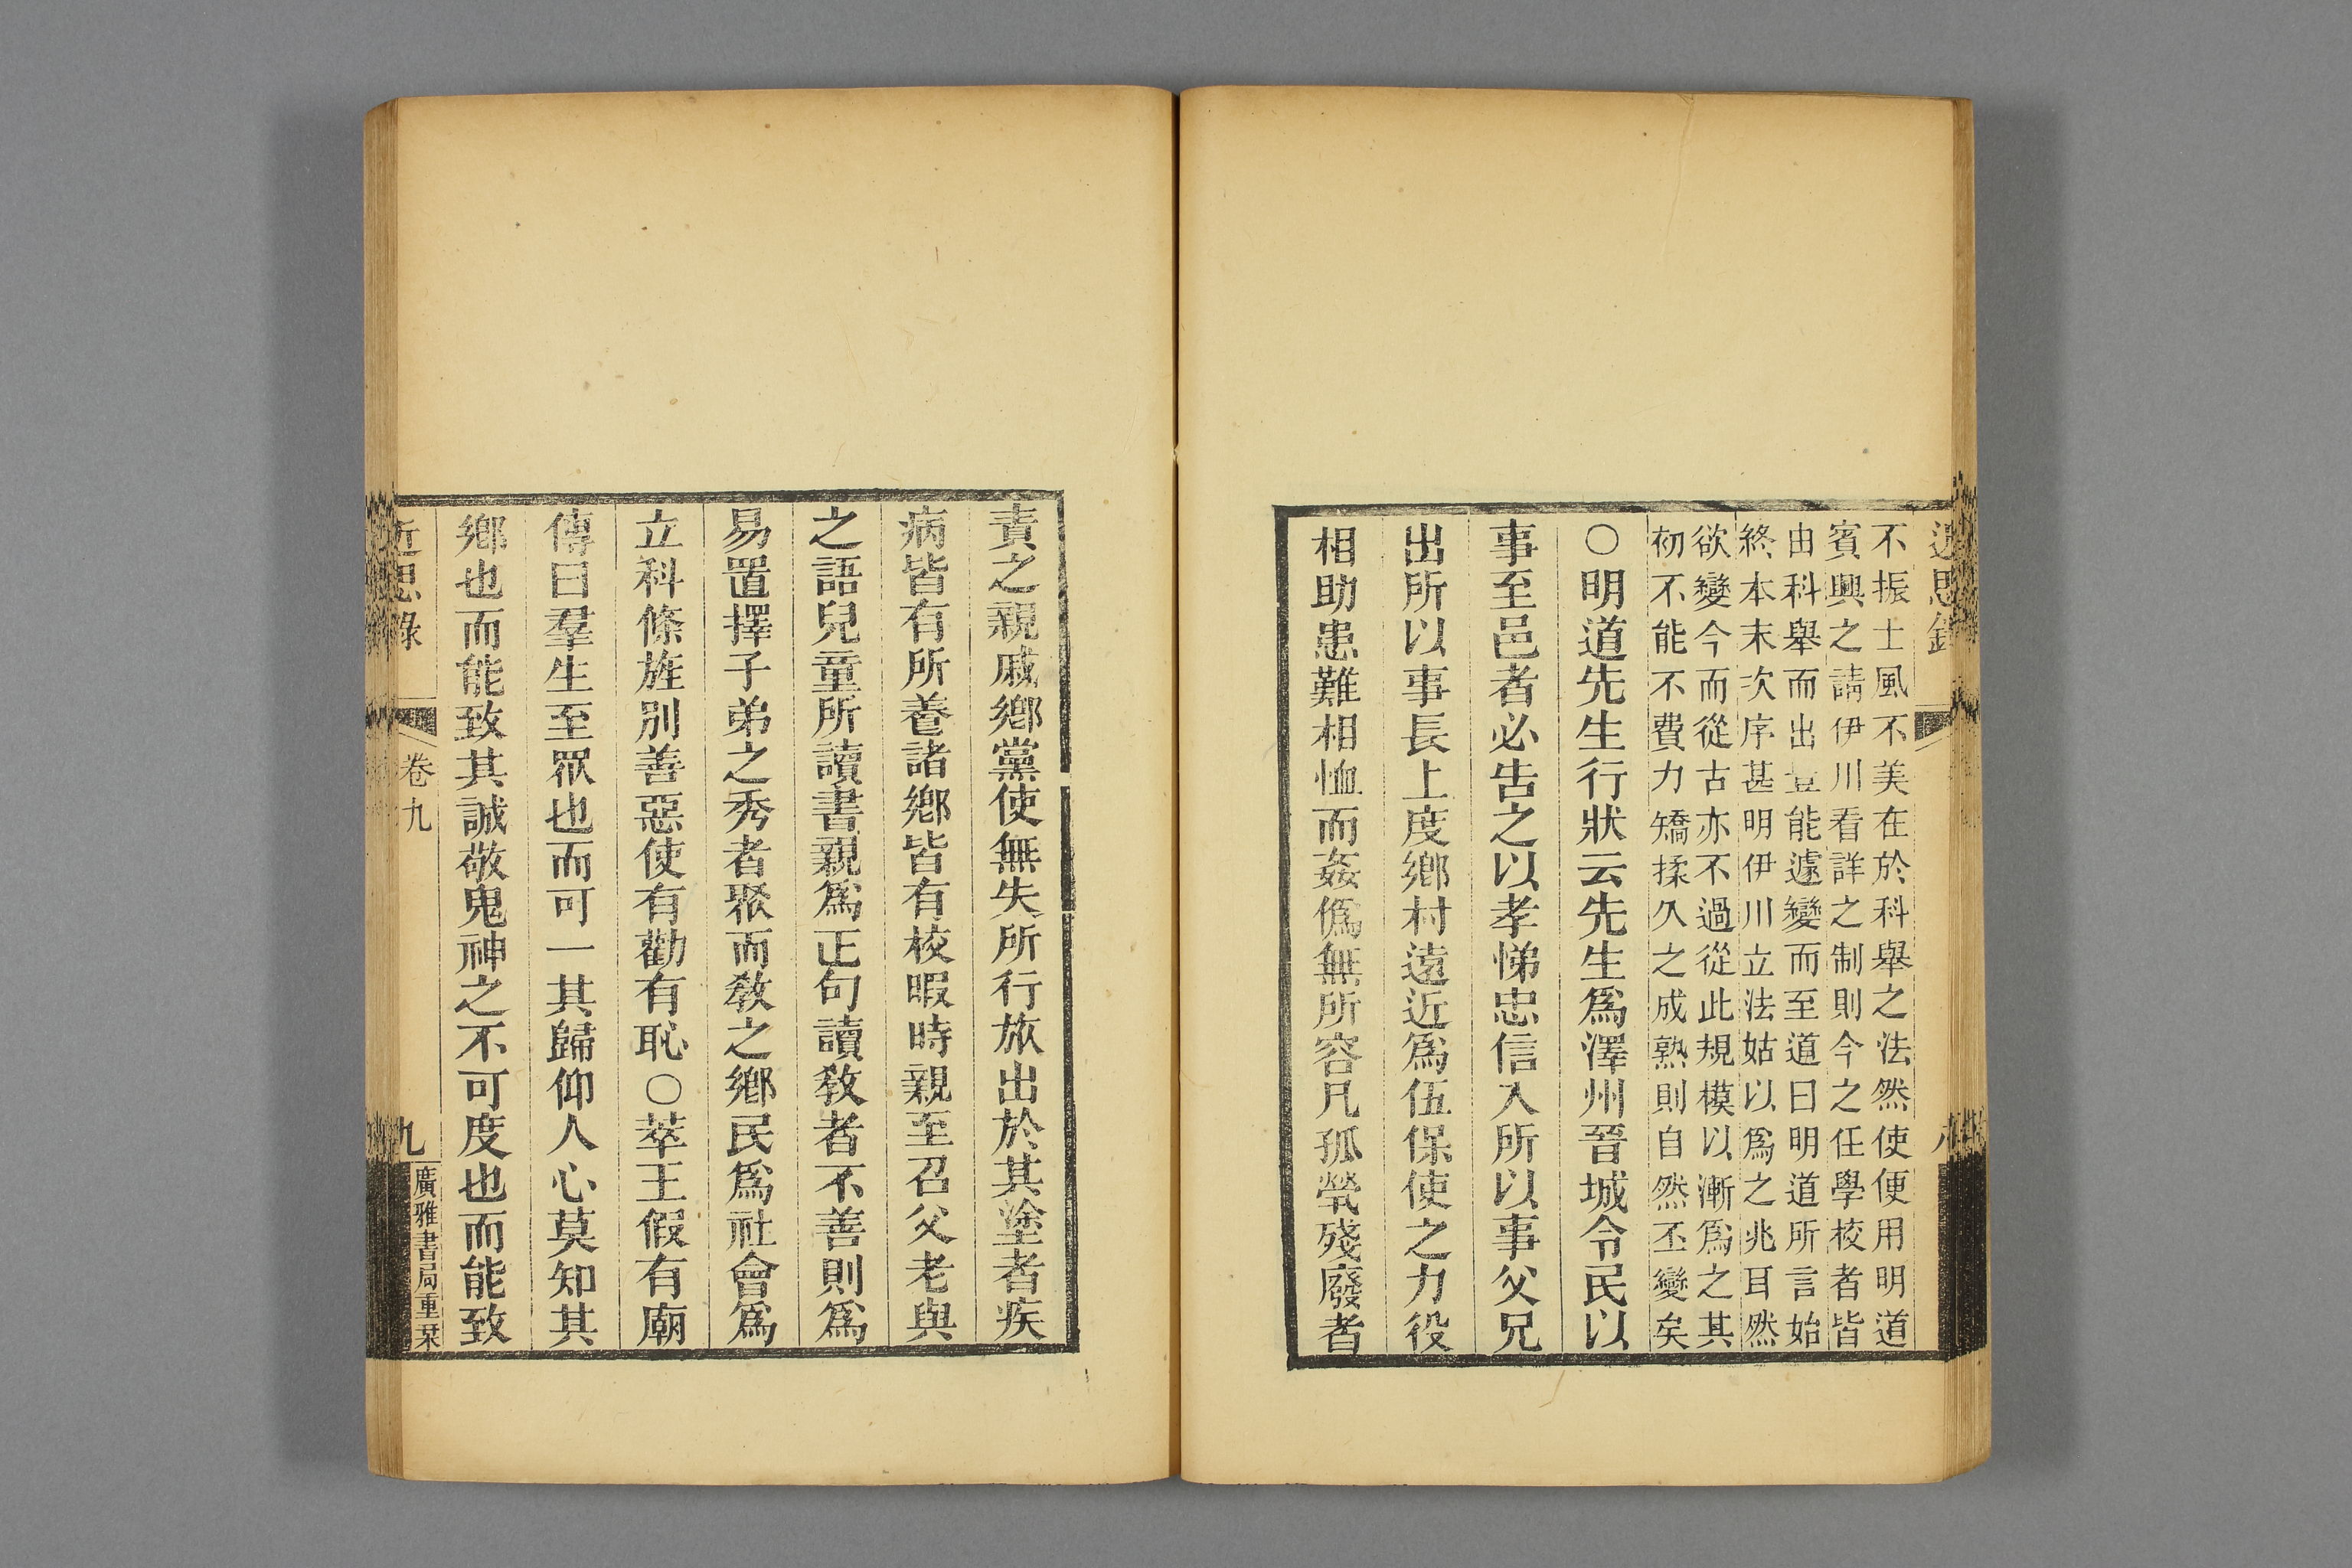 近思錄
不振士風不美在於科舉之法然使便用明道
賓興之請伊川看詳之制則今之任學校者皆
由科舉而出豈能遽變而至道曰明道所言始
終本末次序甚明伊川立法姑以爲之兆耳然
欲變今而從古亦不過從此規模以漸爲之其
初不能不費力矯揉久之成熟則自然丕變矣
○明道先生行狀云先生爲澤州晉城令民以
事至邑者必吿之以孝悌忠信入所以事父兄
出所以事長上度鄉村遠近爲伍保使之力役
相助患難相恤而姦僞無所容凡孤煢殘廢者
責之親戚鄉黨使無失所行旅出於其塗者疾
病皆有所養諸鄉皆有校暇時親至召父老與
之語兒童所讀書親爲正句讀敎者不善則爲
易置擇子弟之秀者聚而敎之鄉民爲社會爲
立科條旌別善惡使有勸有恥○萃王假有廟
傳曰羣生至眾也而可一其歸仰人心莫知其
鄉也而能致其誠敬鬼神之不可度也而能致
近思錄
卷九
九
廣雅書局重栞